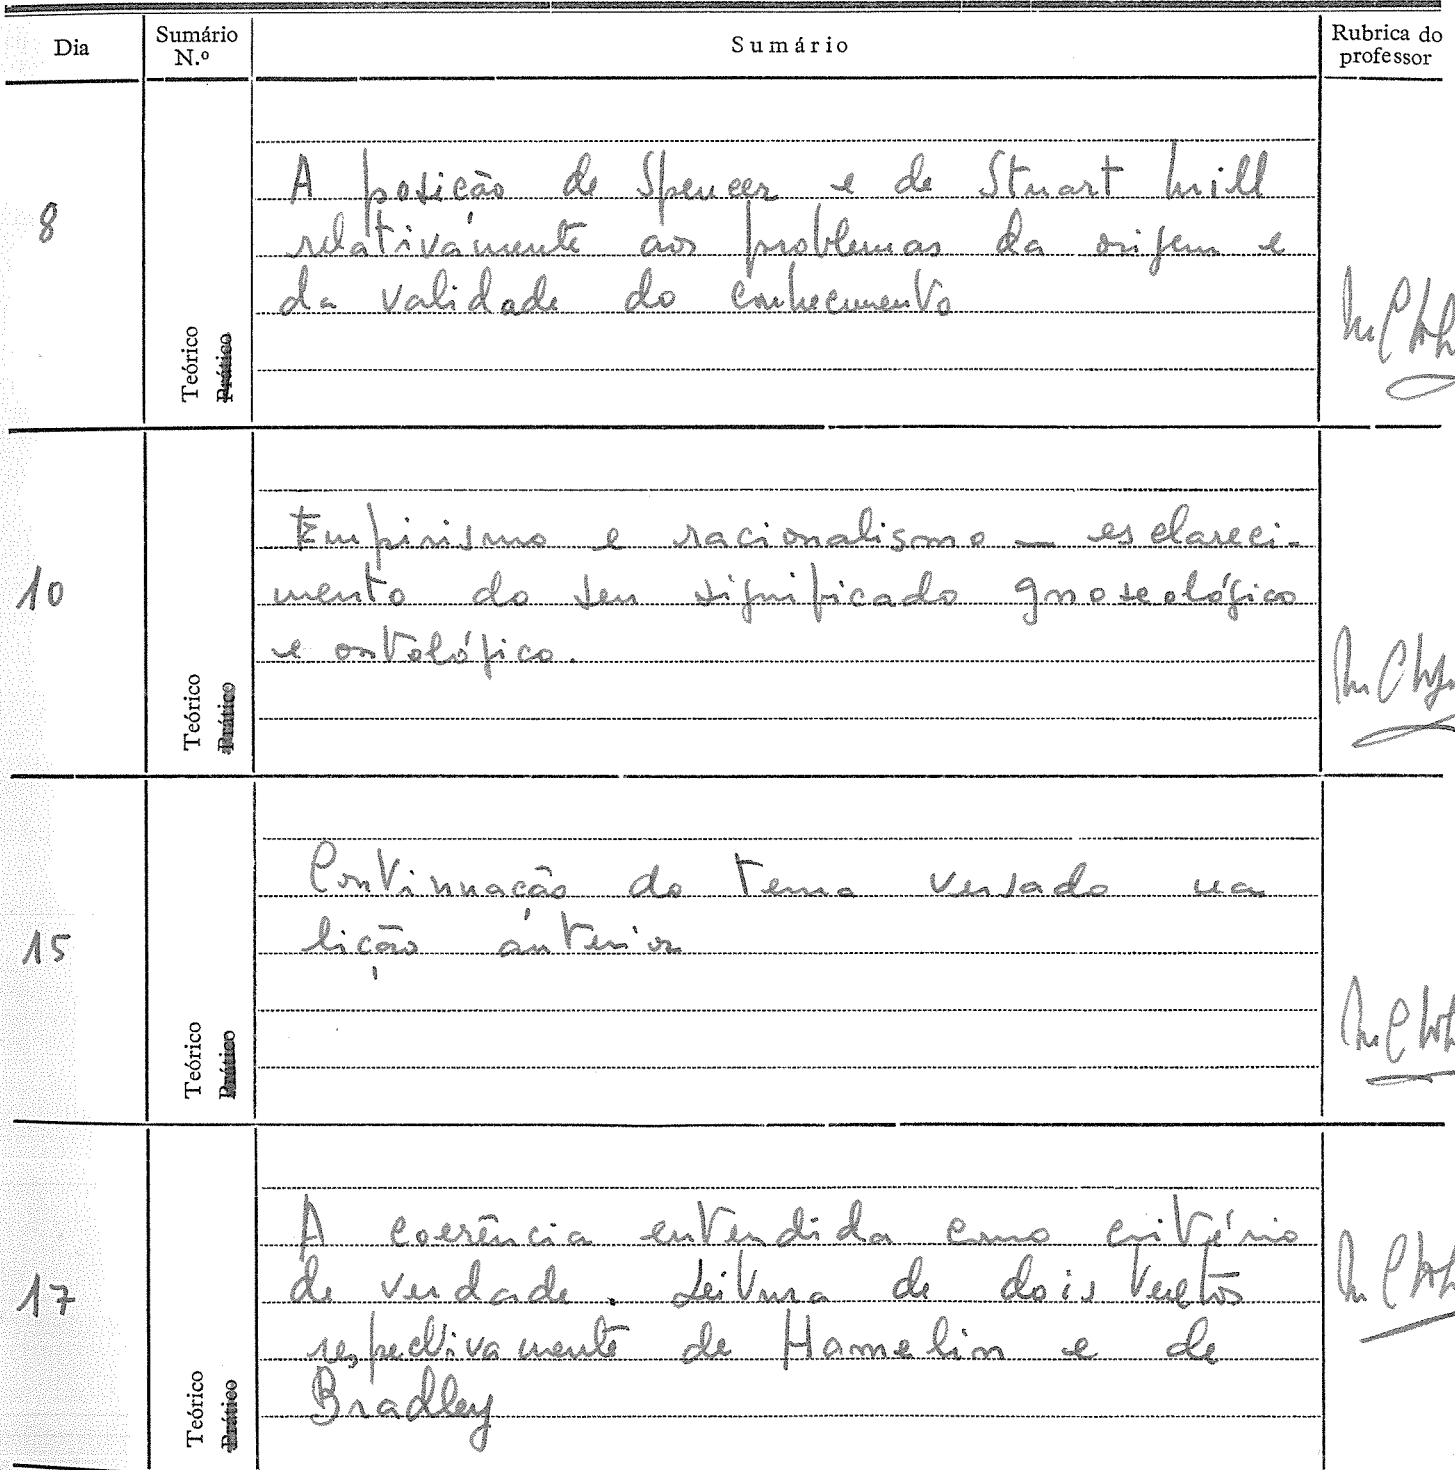 Dia
Sumário N.º
Sumário
Rubrica do professor
8
Teórico
Prático
A posição de Spencer e de Stuart Mill
relativamente aos problemas da origem e
da validade do conhecimento
10
Teórico
Prático
Empirismo e racionalismo — esclareci-
mento do seu significado gnoseológico
e ontológico.
15
Teórico
Prático
Continuação do tema versado na
lição anterior
17
Teórico
Prático
A coerência entendida como critério
de verdade. Leitura de dois textos
respectivamente de Hamelin e de
Bradley